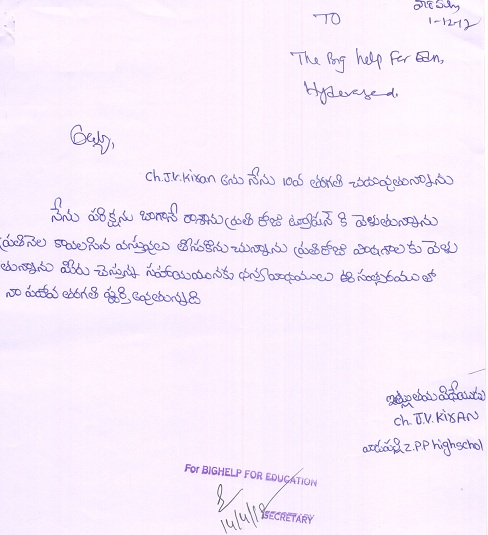 వాడపల్లి
1-12-12
TO
The Big help For Edn,
Hyderabad.
Ch.J.V.Kiran అను నేను 10వ తరగతి చదువుతున్నాను
నేను పరిక్షను బాగానే రాశాను ప్రతి రోజు ట్యూషన్ కి వెళుతున్నాను
ప్రతినెల కావలసిన వస్తువులు తీసుకొను చున్నాను ప్రతిరోజు
తున్నాను మీరు చేస్తున్న సహాయమునకు ధన్యవాదములు ఈ సంత్సరము తో
నా పదోవ తరగతి పూర్తి అవుతున్నది
ఇట్లు తమ విధేయుడు
Ch.J.V.KIRAN
వాడపల్లి Z.PP highschol
For BIGHELP FOR EDUCATION
14/4/18
SECRETARY